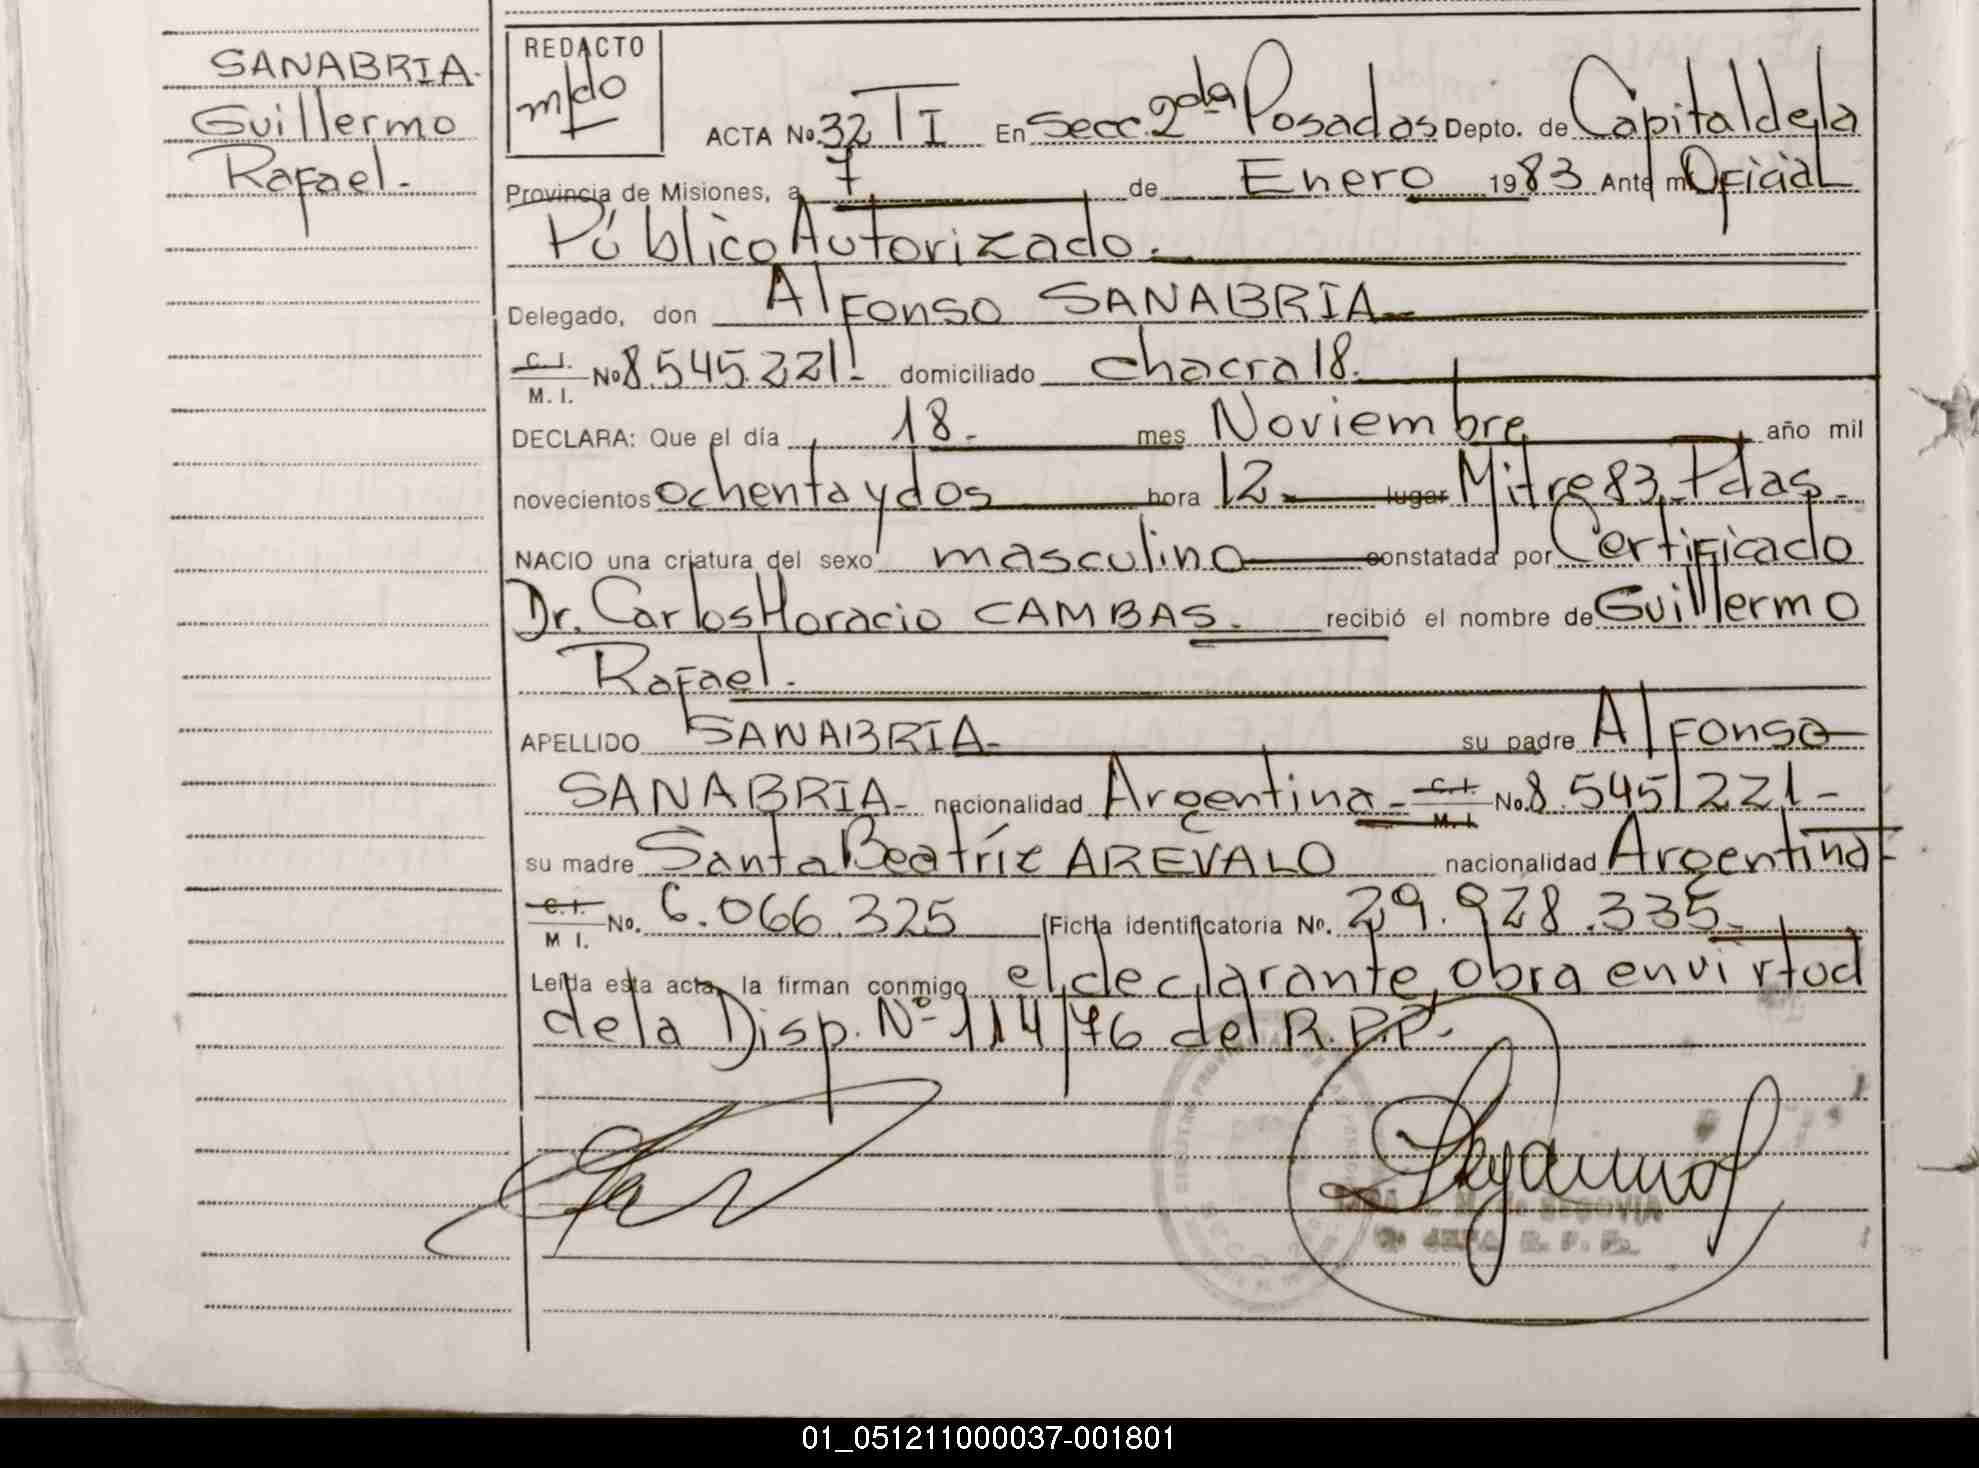 SANABRIA.
Guillermo
Rafael.-
REDACTO
ACTA No. 32 TI En Secc. 2da Posadas Depto. de Capital de la
Provincia de Misiones, a 7 de Enero 1983 Ante mi Oficial
Público Autorizado.-
Delegado, don Alfonso SANABRIA
C. I. M. I. No 8.545.221.- domiciliado chacra 18.
DECLARA: Que el día 18.- mes Noviembre año mil
novecientos ochenta y dos hora 12 lugar Mitre 83, Pdas.-
NACIO una criatura del sexo masculino constatada por Certificado
Dr. Carlos Horacio CAMBAS. recibió el nombre de Guillermo
Rafael.-
APELLIDO SANABRIA- su padre Alfonso
SANABRIA- nacionalidad Argentina- C. I. M. I. No. 8.545.221-
su madre Santa Beatríz AREVALO nacionalidad Argentina-
C. I. M I. No. 6.066.325 (Ficha identificatoria No. 29.928.335-
Leída esta acta, la firman conmigo el declarante, obra en virtud
de la Disp. Nº 114/76 del R.P.P.-
01_051211000037-001801